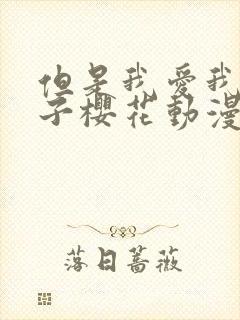 但是我愛我
子櫻花動漫
落日薔薇